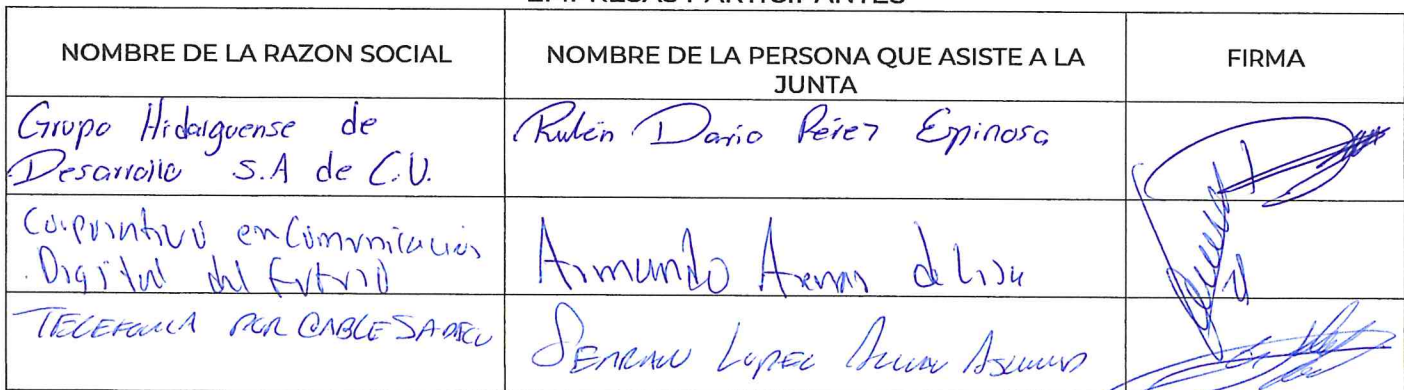 EMPRESAS PARTICIPANTES
NOMBRE DE LA RAZON SOCIAL
NOMBRE DE LA PERSONA QUE ASISTE A LA
JUNTA
FIRMA
Grupo Hidalguense de
Desarrollo S.A de C.V.
Rubén Dario Pérez Espinosa
Corporativo en Comunicación
Digital del Futuro
Armando Arenas de
TELEFONIA POR CABLE SA DE CV
LOPEZ